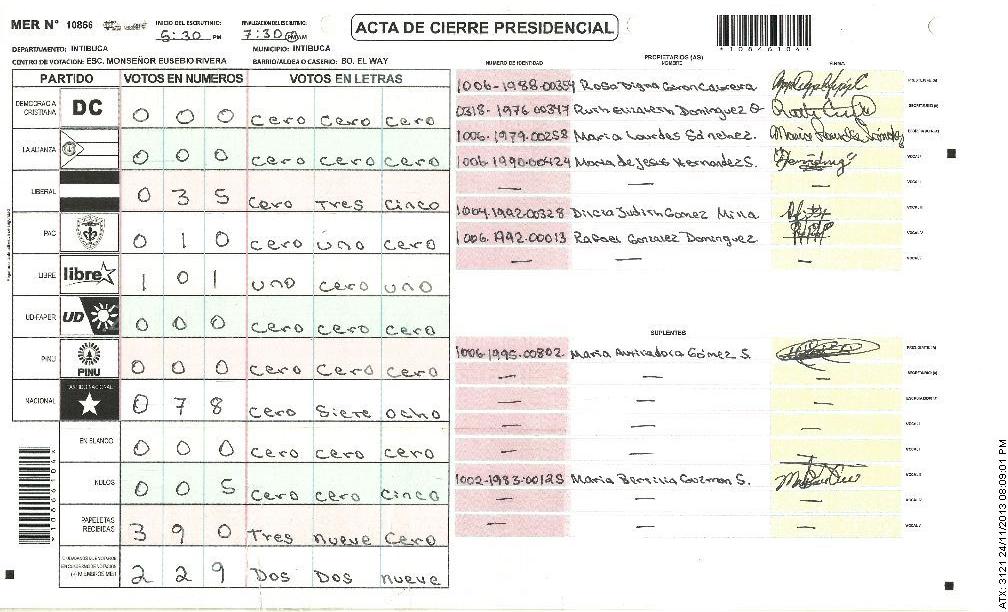 MER N° 10866 INICIO DEL ESCRUTINIO: 5:30 PM FINALIZACION DEL ESCRUTINIO: 7:30 PM
ACTA DE CIERRE PRESIDENCIAL
*10866104*
DEPARTAMENTO: INTIBUCA MUNICIPIO: INTIBUCA
CENTRO DE VOTACION: ESC. MONSEÑOR EUSEBIO RIVERA BARRIO/ALDEA O CASERIO: BO. EL WAY
PARTIDO VOTOS EN NUMEROS VOTOS EN LETRAS
DEMOCRACIA CRISTIANA DC 0 0 0 cero cero cero
LA ALIANZA 0 0 0 cero cero cero
LIBERAL 0 3 5 cero Tres cinco
PAC 0 1 0 cero uno cero
LIBRE libre 1 0 1 uno cero uno
UD-FAPER UD 0 0 0 cero cero cero
PINU PINU 0 0 0 cero cero cero
NACIONAL PARTIDO NACIONAL 0 7 8 cero Siete ocho
EN BLANCO 0 0 0 cero cero cero
NULOS 0 0 5 cero cero cinco
PAPELETAS RECIBIDAS 3 9 0 Tres nueve cero
2 2 9 Dos Dos nueve
PROPIETARIOS (AS)
NUMERO DE IDENTIDAD NOMBRE FIRMA
1006-1988-00354 Rosa Digna Geron Cabrera PRESIDENTE (A)
0318-1976-00347 Ruth Elizabeth Dominguez SECRETARIO (A)
1006-1979-00258 Maria Lourdes Sánchez.
1006-1990-00424 Maria de Jesus Hernandez S. VOCAL I
— — —
1004-1992-00328 Dilcia Judith Gomez Milla
1006-1992-00013 Rafael Gonzalez Dominguez
— — —
SUPLENTES
1006-1995-00802 Maria Auxiliadora Gómez S. PRESIDENTE (A)
— — — SECRETARIO (A)
— — —
— — —
— —
1002-1983-00125 Maria Bersilia Guzman S.
— — —
— — —
*10866104*
ATX: 3121 24/11/2013 08:09:01 PM